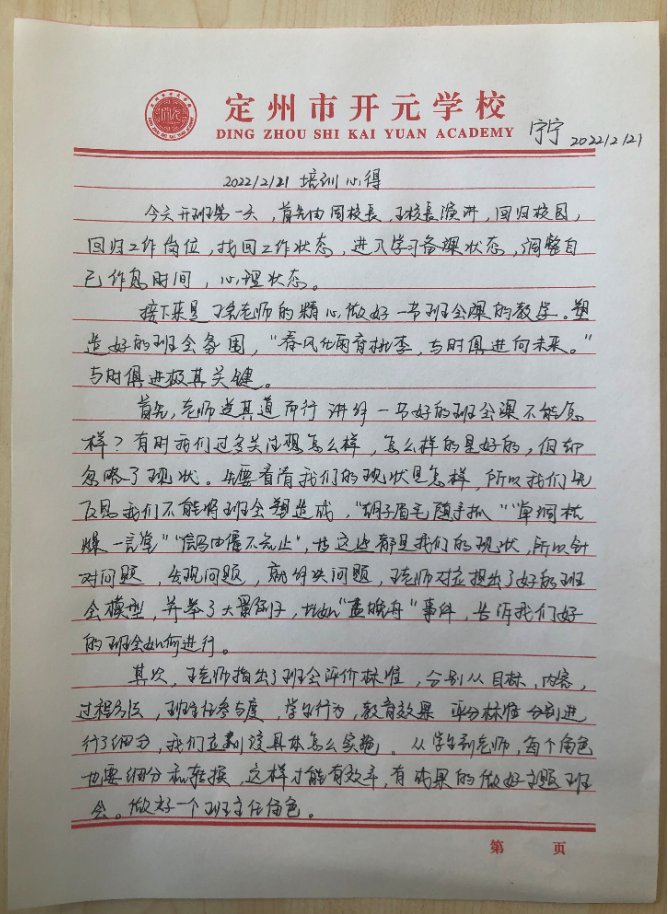 定州市开元学校
DING ZHOU SHI KAI YUAN ACADEMY
宁宁 2022/2/21
2022/2/21 培训心得
今天开班第一天，首先由闫校长，王校长演讲，回归校园，
回归工作岗位，找回工作状态，进入学习备课状态，调整自
己作息时间，心理状态。
接下来是王老师的精心做好一节班会课的教学。塑
造好的班会氛围，“春风化雨育桃李，与时俱进向未来。”
与时俱进极其关键。
首先，老师道其道而行 讲解一节好的班会课不能怎
样？有时我们过多关注想怎么样，怎么样的是好的，但却
忽略了现状。先要看看我们的现状是怎样，所以我们先
反思我们不能将班会塑造成，“胡子眉毛随手抓”“单调枯
燥一言堂”“信马由缰不知止”，这些都是我们的现状，所以针
对问题，发现问题，就解决问题，王老师对应提出了好的班
会模型，并举了大量例子，比如“孟晚舟”事件，告诉我们好
的班会如何进行。
其次，王老师指出了班会评价标准，分别从目标、内容，
过程方法，班主任参与度，学生行为，教育效果 评分标准分别进
行了细分，我们立刻该具体怎么实施。从学生到老师，每个角色
也要细分和转换，这样才能有效率，有成果的做好主题班
会。做好一个班主任角色。
第 页